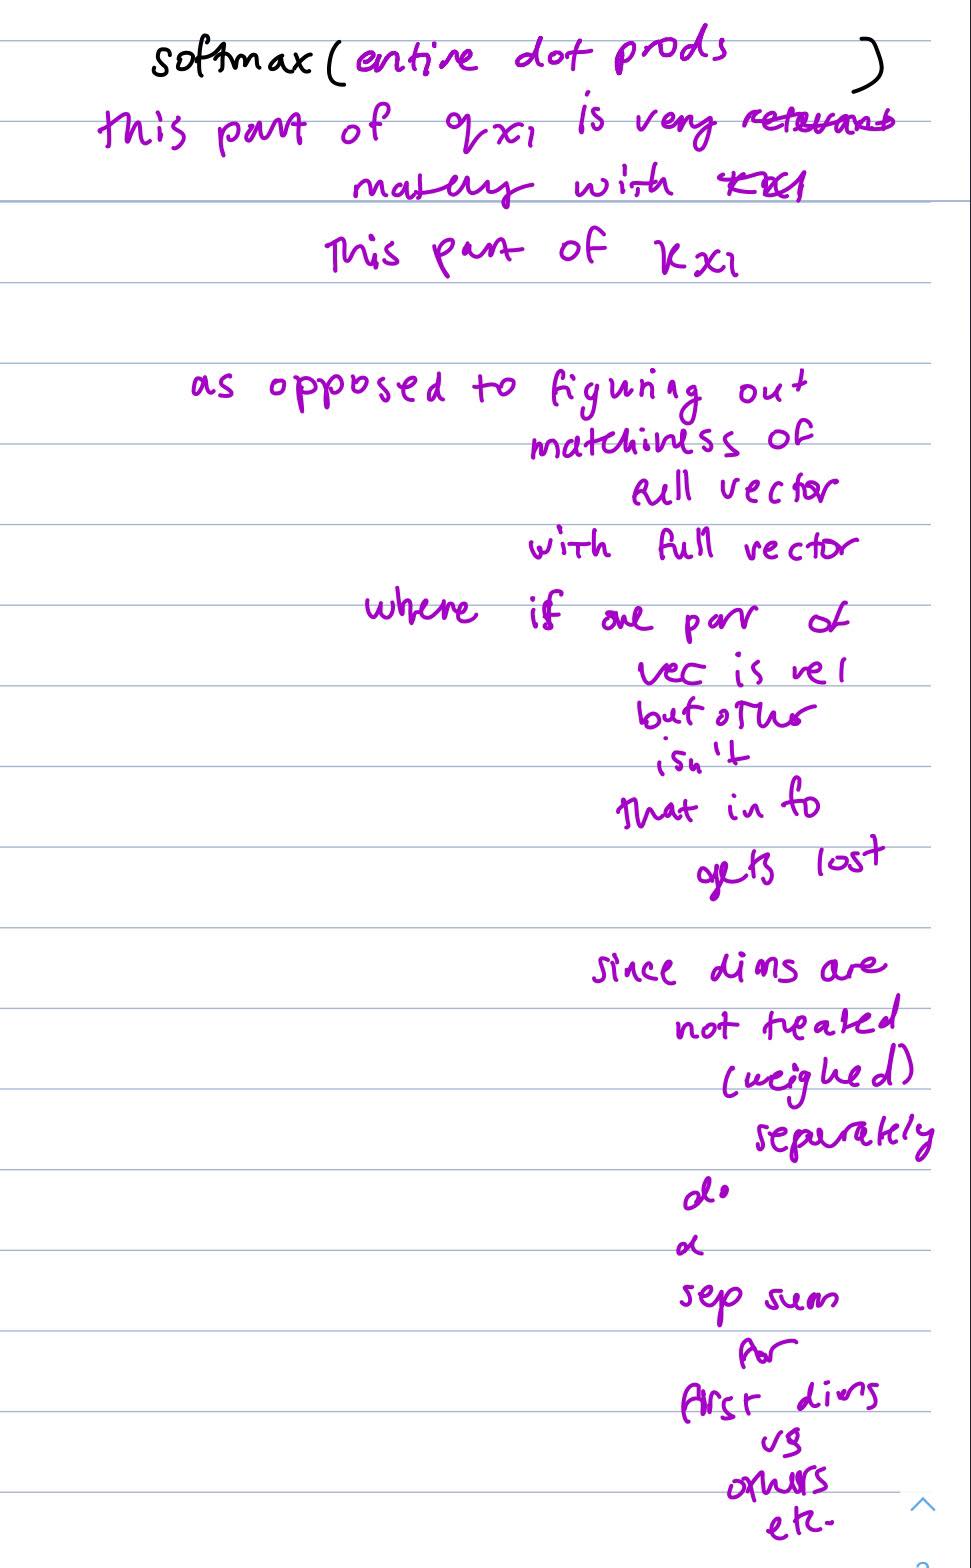 softmax (entire dot prods )
this part of qx1 is very relevant
matchy with kx1
this part of kx1
as opposed to figuring out
matchiness of
full vector
with full vector
where if one part of
vec is rel
but other
isn't
that info
gets lost
since dims are
not treated
(weighed)
separately
do
a
sep sum
for
first dims
vs
others
etc.